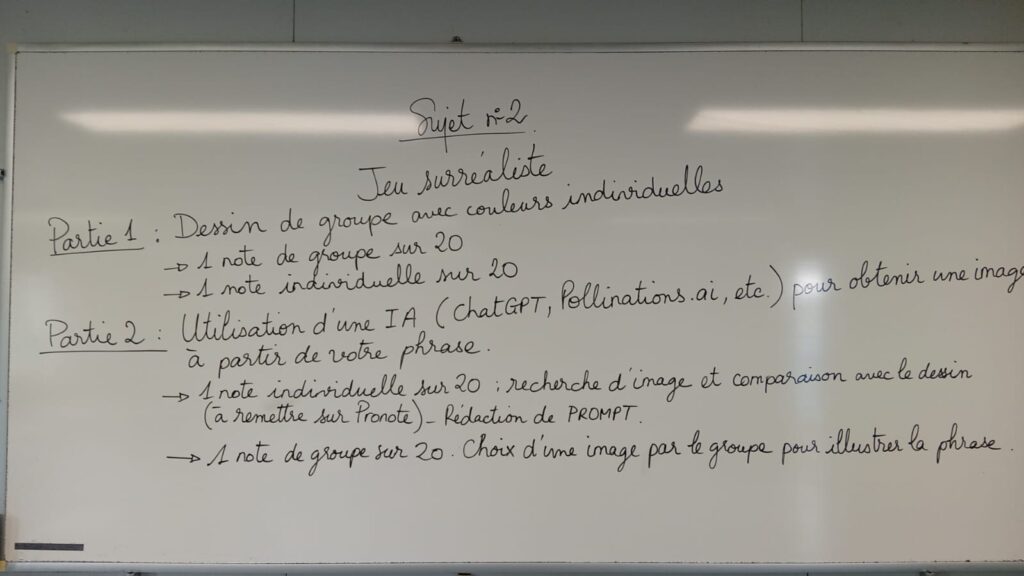 Sujet n°2
Jeu surréaliste
Partie 1 : Dessin de groupe avec couleurs individuelles
→ 1 note de groupe sur 20
→ 1 note individuelle sur 20
Partie 2 : Utilisation d'une IA (ChatGPT, Pollinations.ai, etc.) pour obtenir une image
à partir de votre phrase.
→ 1 note individuelle sur 20 : recherche d'image et comparaison avec le dessin
(à remettre sur Pronote) - Rédaction de PROMPT.
→ 1 note de groupe sur 20. Choix d'une image par le groupe pour illustrer la phrase.